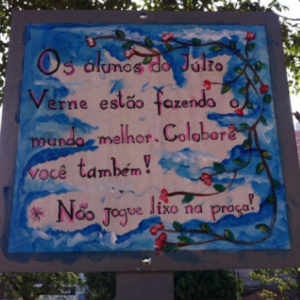 Os alunos do Júlio
Verne estão fazendo o
mundo melhor. Colabore
você também!
* Não jogue lixo na praça!